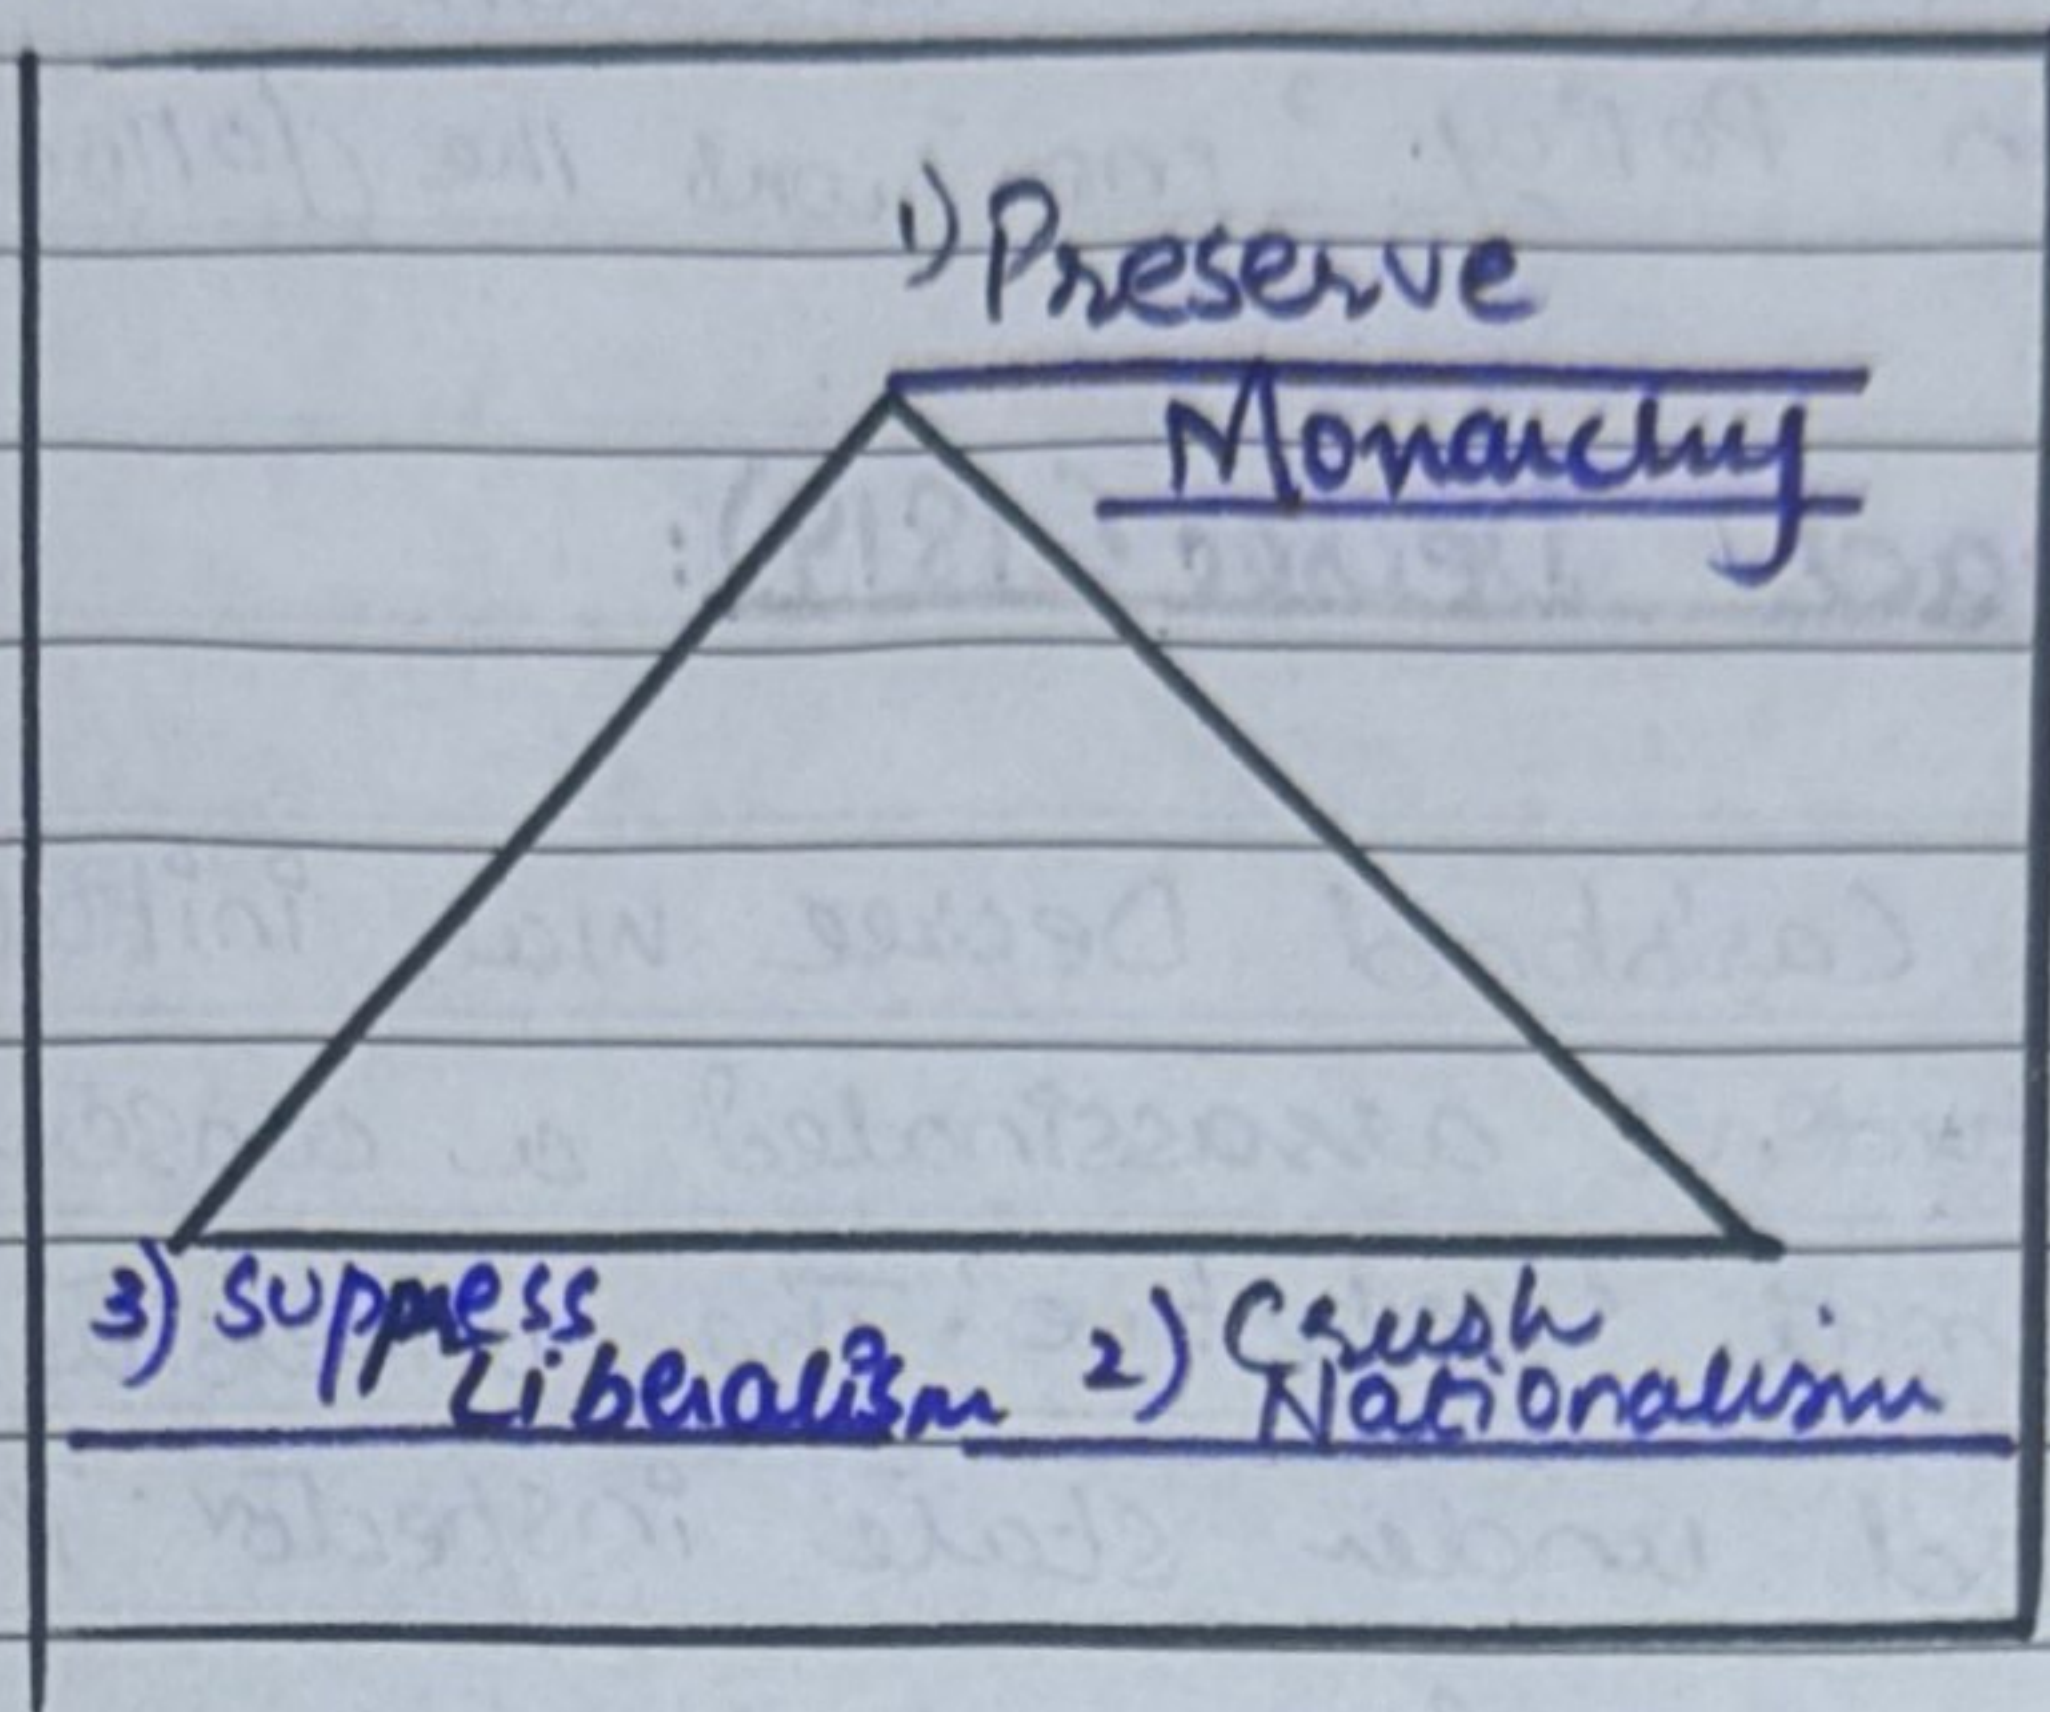 1) Preserve
Monarchy
3) Suppress
Liberalism
2) Crush
Nationalism